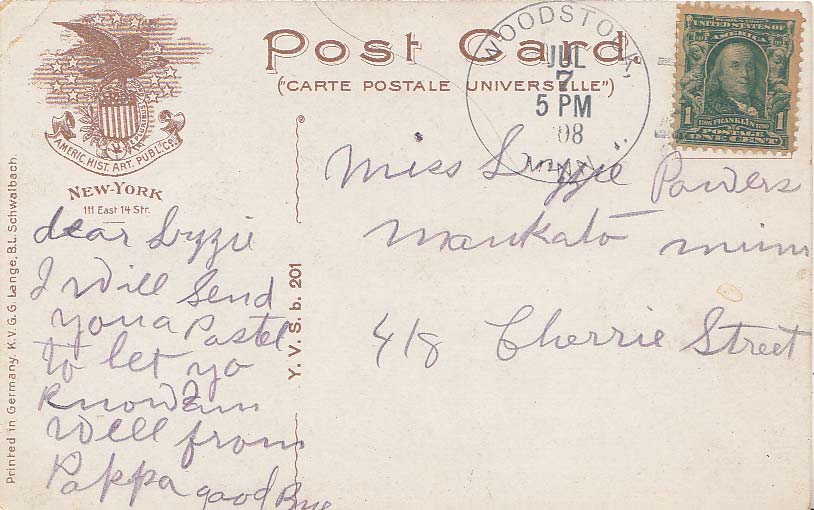 Post Card.
("CARTE POSTALE UNIVERSELLE")
AMERIC. HIST. ART. PUBL. Co.
NEW-YORK
111 East 14 Str.
WOODSTOCK,
JUL
7
5 PM
08
MINN.
UNITED STATES OF
AMERICA
1 FRANKLIN 1
POSTAGE
ONE CENT
Miss Lyzzie Powers
Mankato minn
418 Cherrie Street
dear Lyzzie
I Will Send
you a Postel
to let yo
Know I am
Well from
Pappa good Bye
Y. V. S. b. 201
Printed in Germany. K.V.G. G. Lange, B.L. Schwalbach.